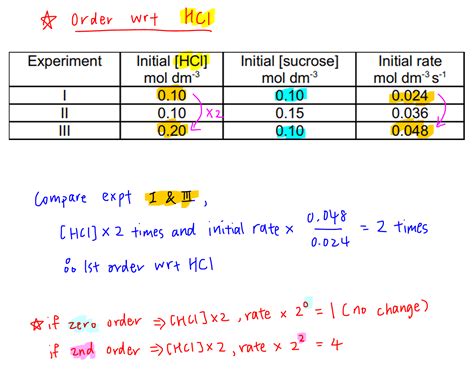 ☆ Order wrt HCl
Experiment Initial [HCl] mol dm⁻³ Initial [sucrose] mol dm⁻³ Initial rate mol dm⁻³ s⁻¹
I 0.10 0.10 0.024
II 0.10 ×2 0.15 0.036
III 0.20 0.10 0.048
Compare expt I & III,
[HCl] × 2 times and initial rate × 0.048/0.024 = 2 times
∴ 1st order wrt HCl
☆ if zero order ⇒ [HCl] × 2, rate × 2⁰ = 1 (no change)
if 2nd order ⇒ [HCl] × 2, rate × 2² = 4